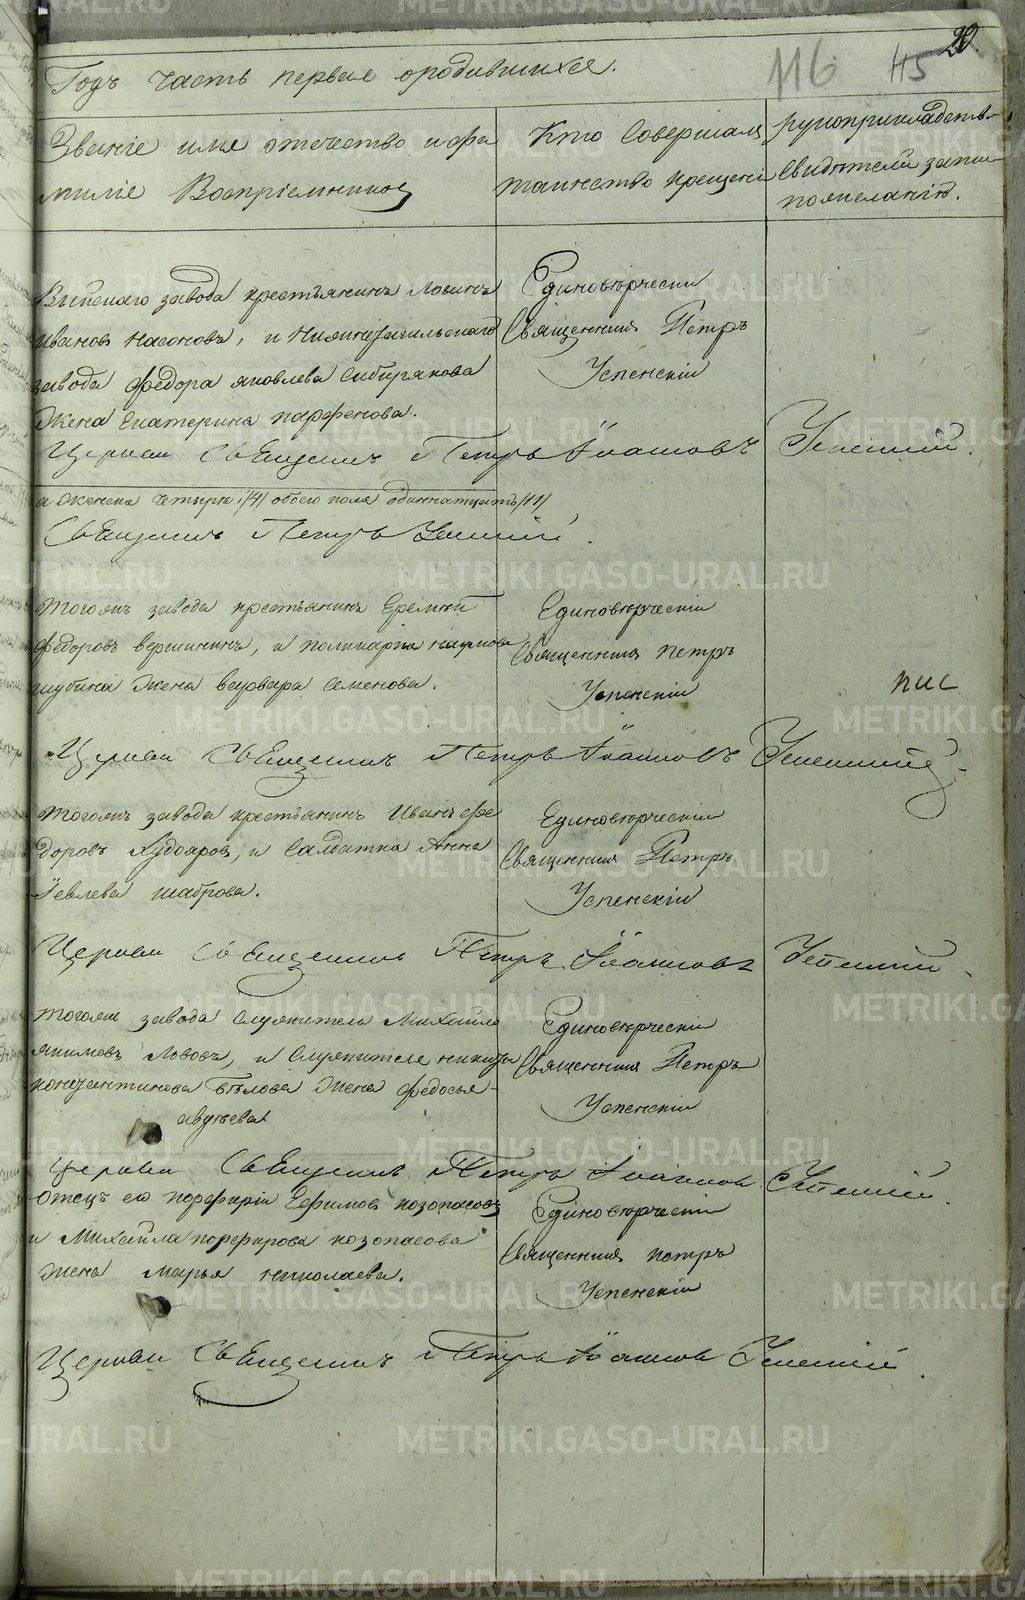 20.
116 115
Годъ часть первая ородившихся.
Званіе имя отечество ифа
миліе Воспріемниковъ
Кто Совершалъ
таинство крещені
рукоприкладств
Свидѣтелей запи
пожеланію.
Выйскаго завода крестьянинъ Логинъ
Ивановъ Насоновъ, и Нижнетагильскаго
завода Федора яковлева Сибирякова
Жена Екатерина парфенова.
Единовѣрческій
Священникъ Петръ
Успенскій
Церкви Священникъ Петръ Іоанновъ Успенскій.
а женска четыре /4/ обоего пола одиннатцать /11/
Священникъ Петръ Успенскій.
Тогожъ завода крестьянинъ Еремѣй
Федоровъ вершининъ, и поликарпа наумова
шубина Жена варвара Семенова.
Единовѣрческій
Священникъ петръ
Успенскій
пис
Церкви Священникъ Петръ Іоанновъ Успенскій
Тогожъ завода крестьянинъ Иванъ Фе
доровъ Худояровъ, и Салдатка Анна
Іевлева шаброва.
Единовѣрческій
Священникъ Петръ
Успенскій
Церкви Священникъ Петръ Іоанновъ Успенскій
Тогожъ завода Служитель Михайло
якимовъ Лововъ, и Служителя никиты
констянтинова Бѣлова Жена федосья
авдѣева
Единовѣрческій
Священникъ Петръ
Успенскій
Церкви Священникъ Петръ Іоанновъ Успенскій.
Отецъ его порфирій Ефимовъ козопасовъ
и Михайла порфирова козопасова
Жена Марья николаева.
Единовѣрческій
Священникъ петръ
Успенскій
Церкви Священникъ Петръ Іоанновъ Успенскій.
METRIKI.GASO-URAL.RU